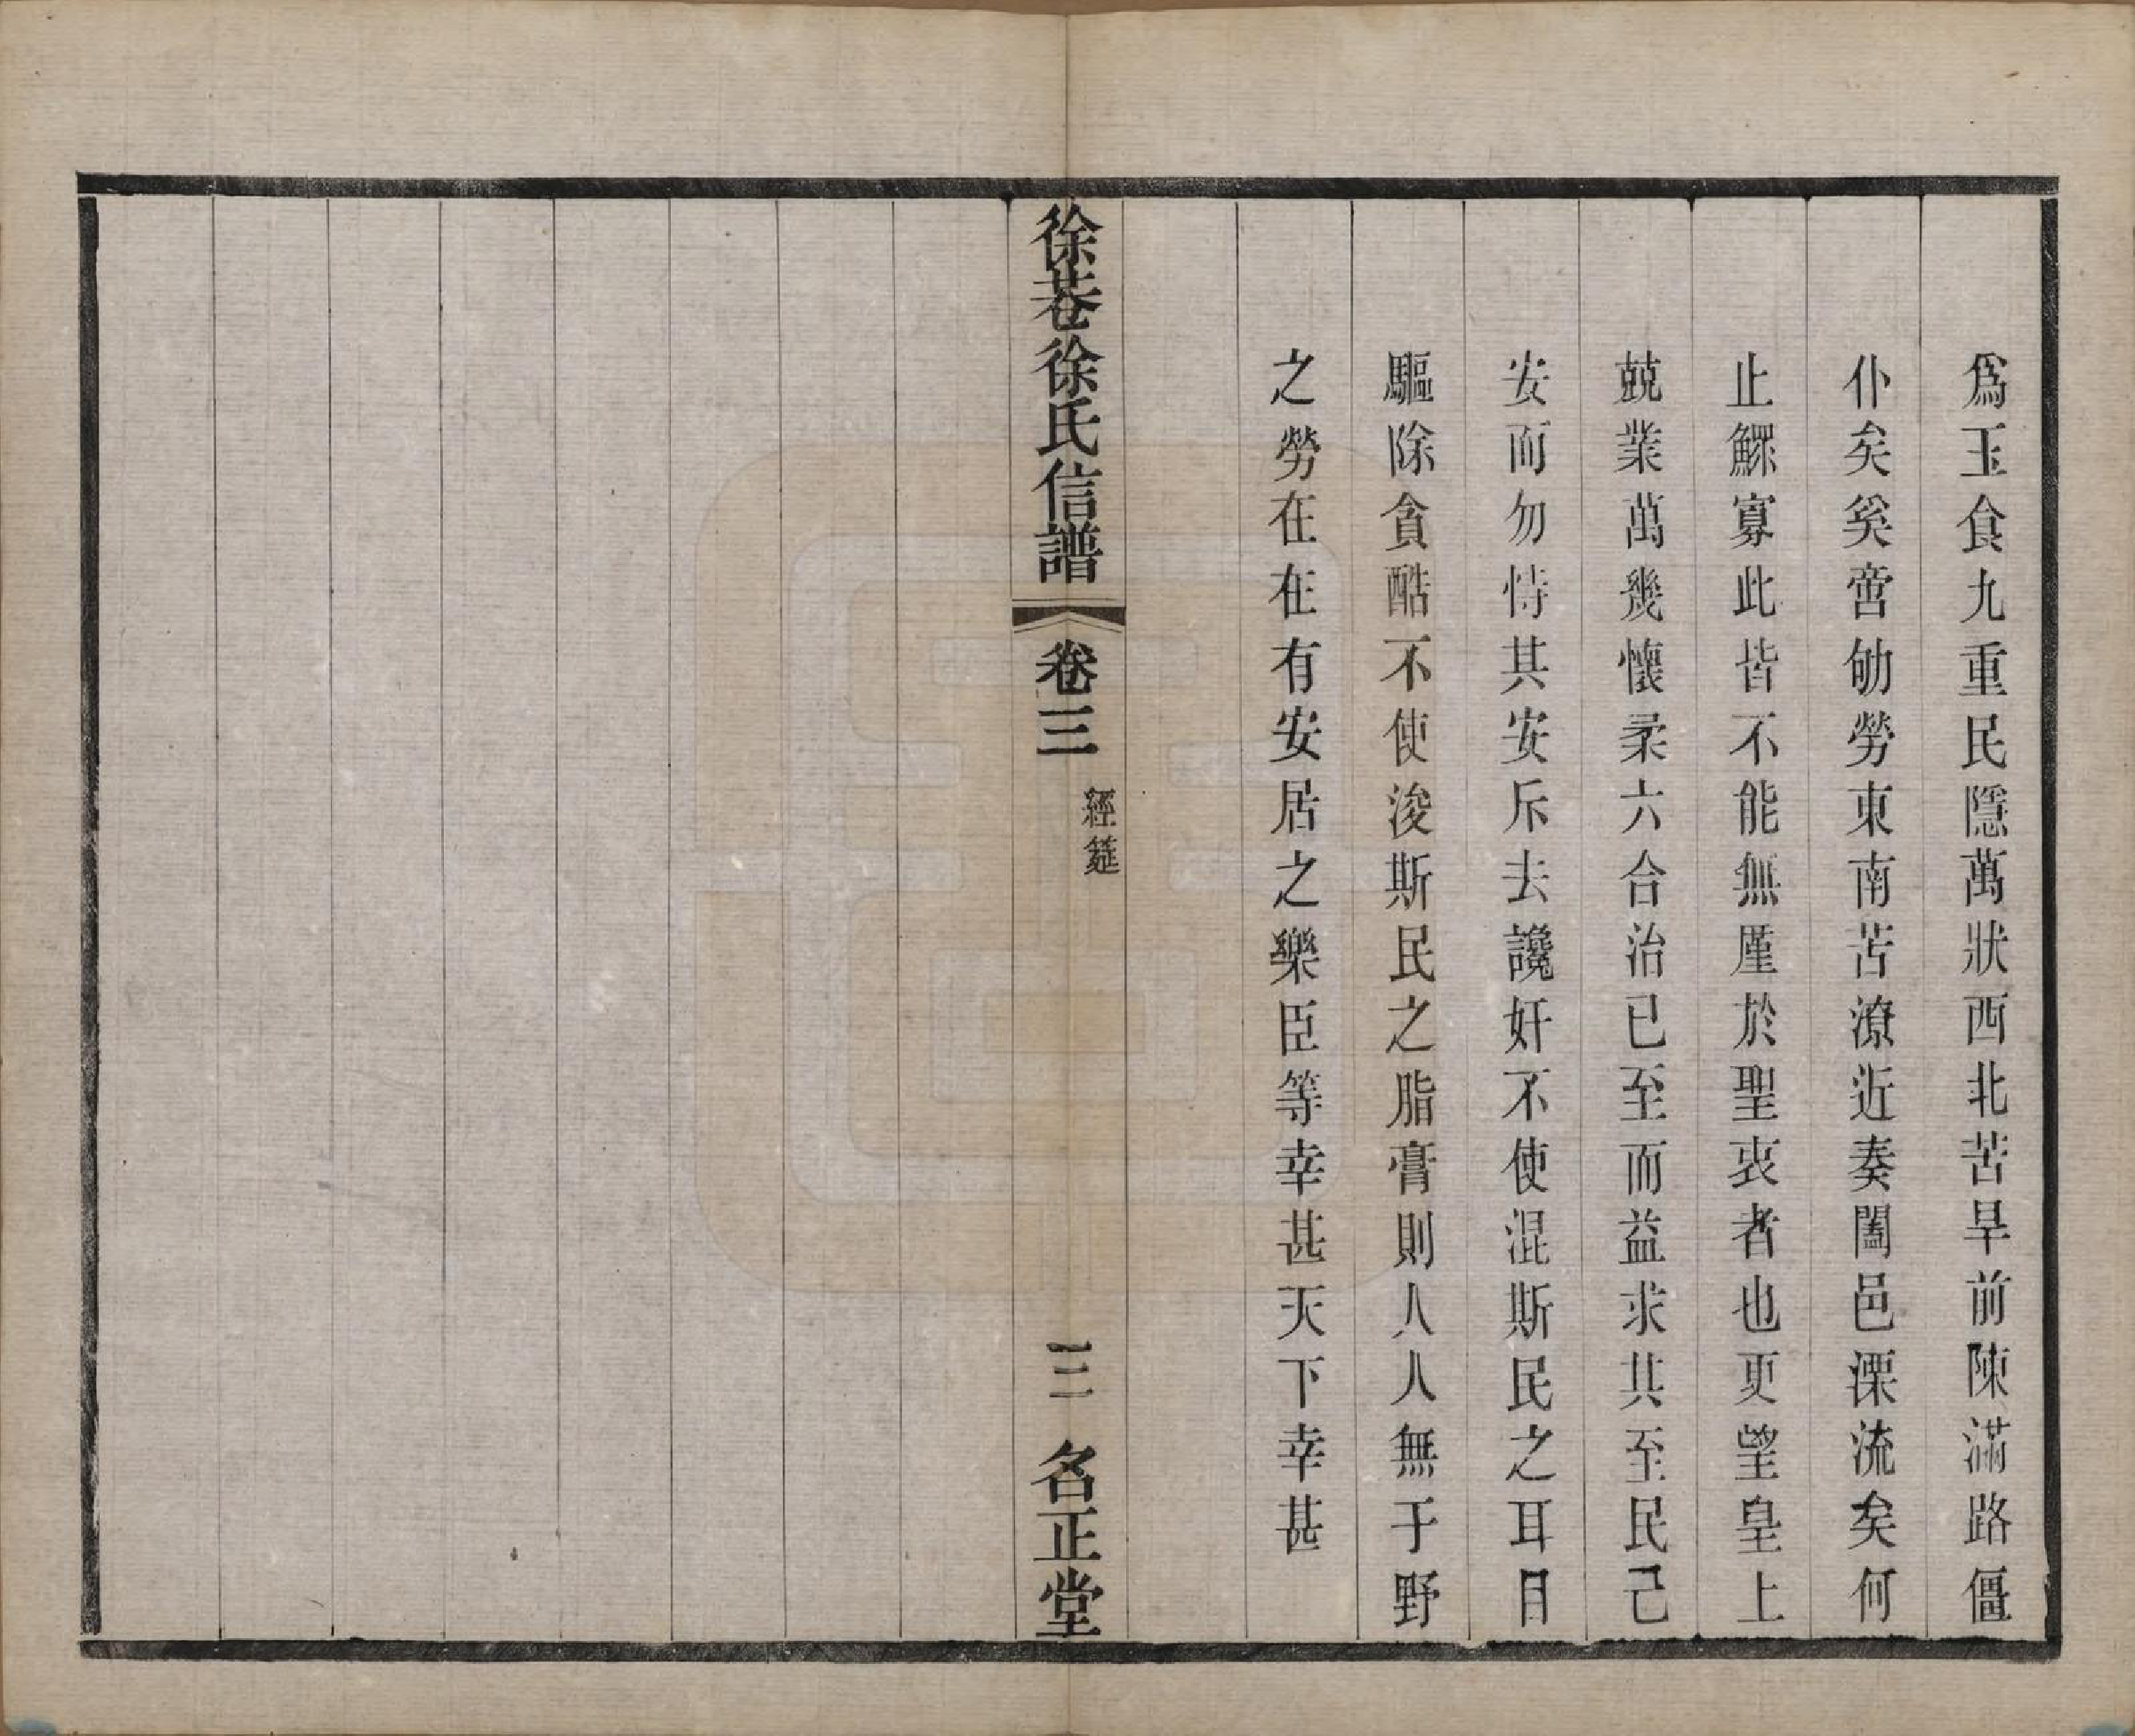 爲玉食九重民隱萬狀西北苦旱前陳滿路僵
仆矣奚啻劬勞東南苦潦近奏闔邑漂流矣何
止鰥寡此皆不能無廑於聖衷者也更望皇上
兢業萬幾懷柔六合治已至而益求其至民己
安而勿恃其安斥去讒奸不使混斯民之耳目
驅除貪酷不使浚斯民之脂膏則人人無于野
之勞在在有安居之樂臣等幸甚天下幸甚
徐巷徐氏信譜 卷三 經筵 三 名正堂